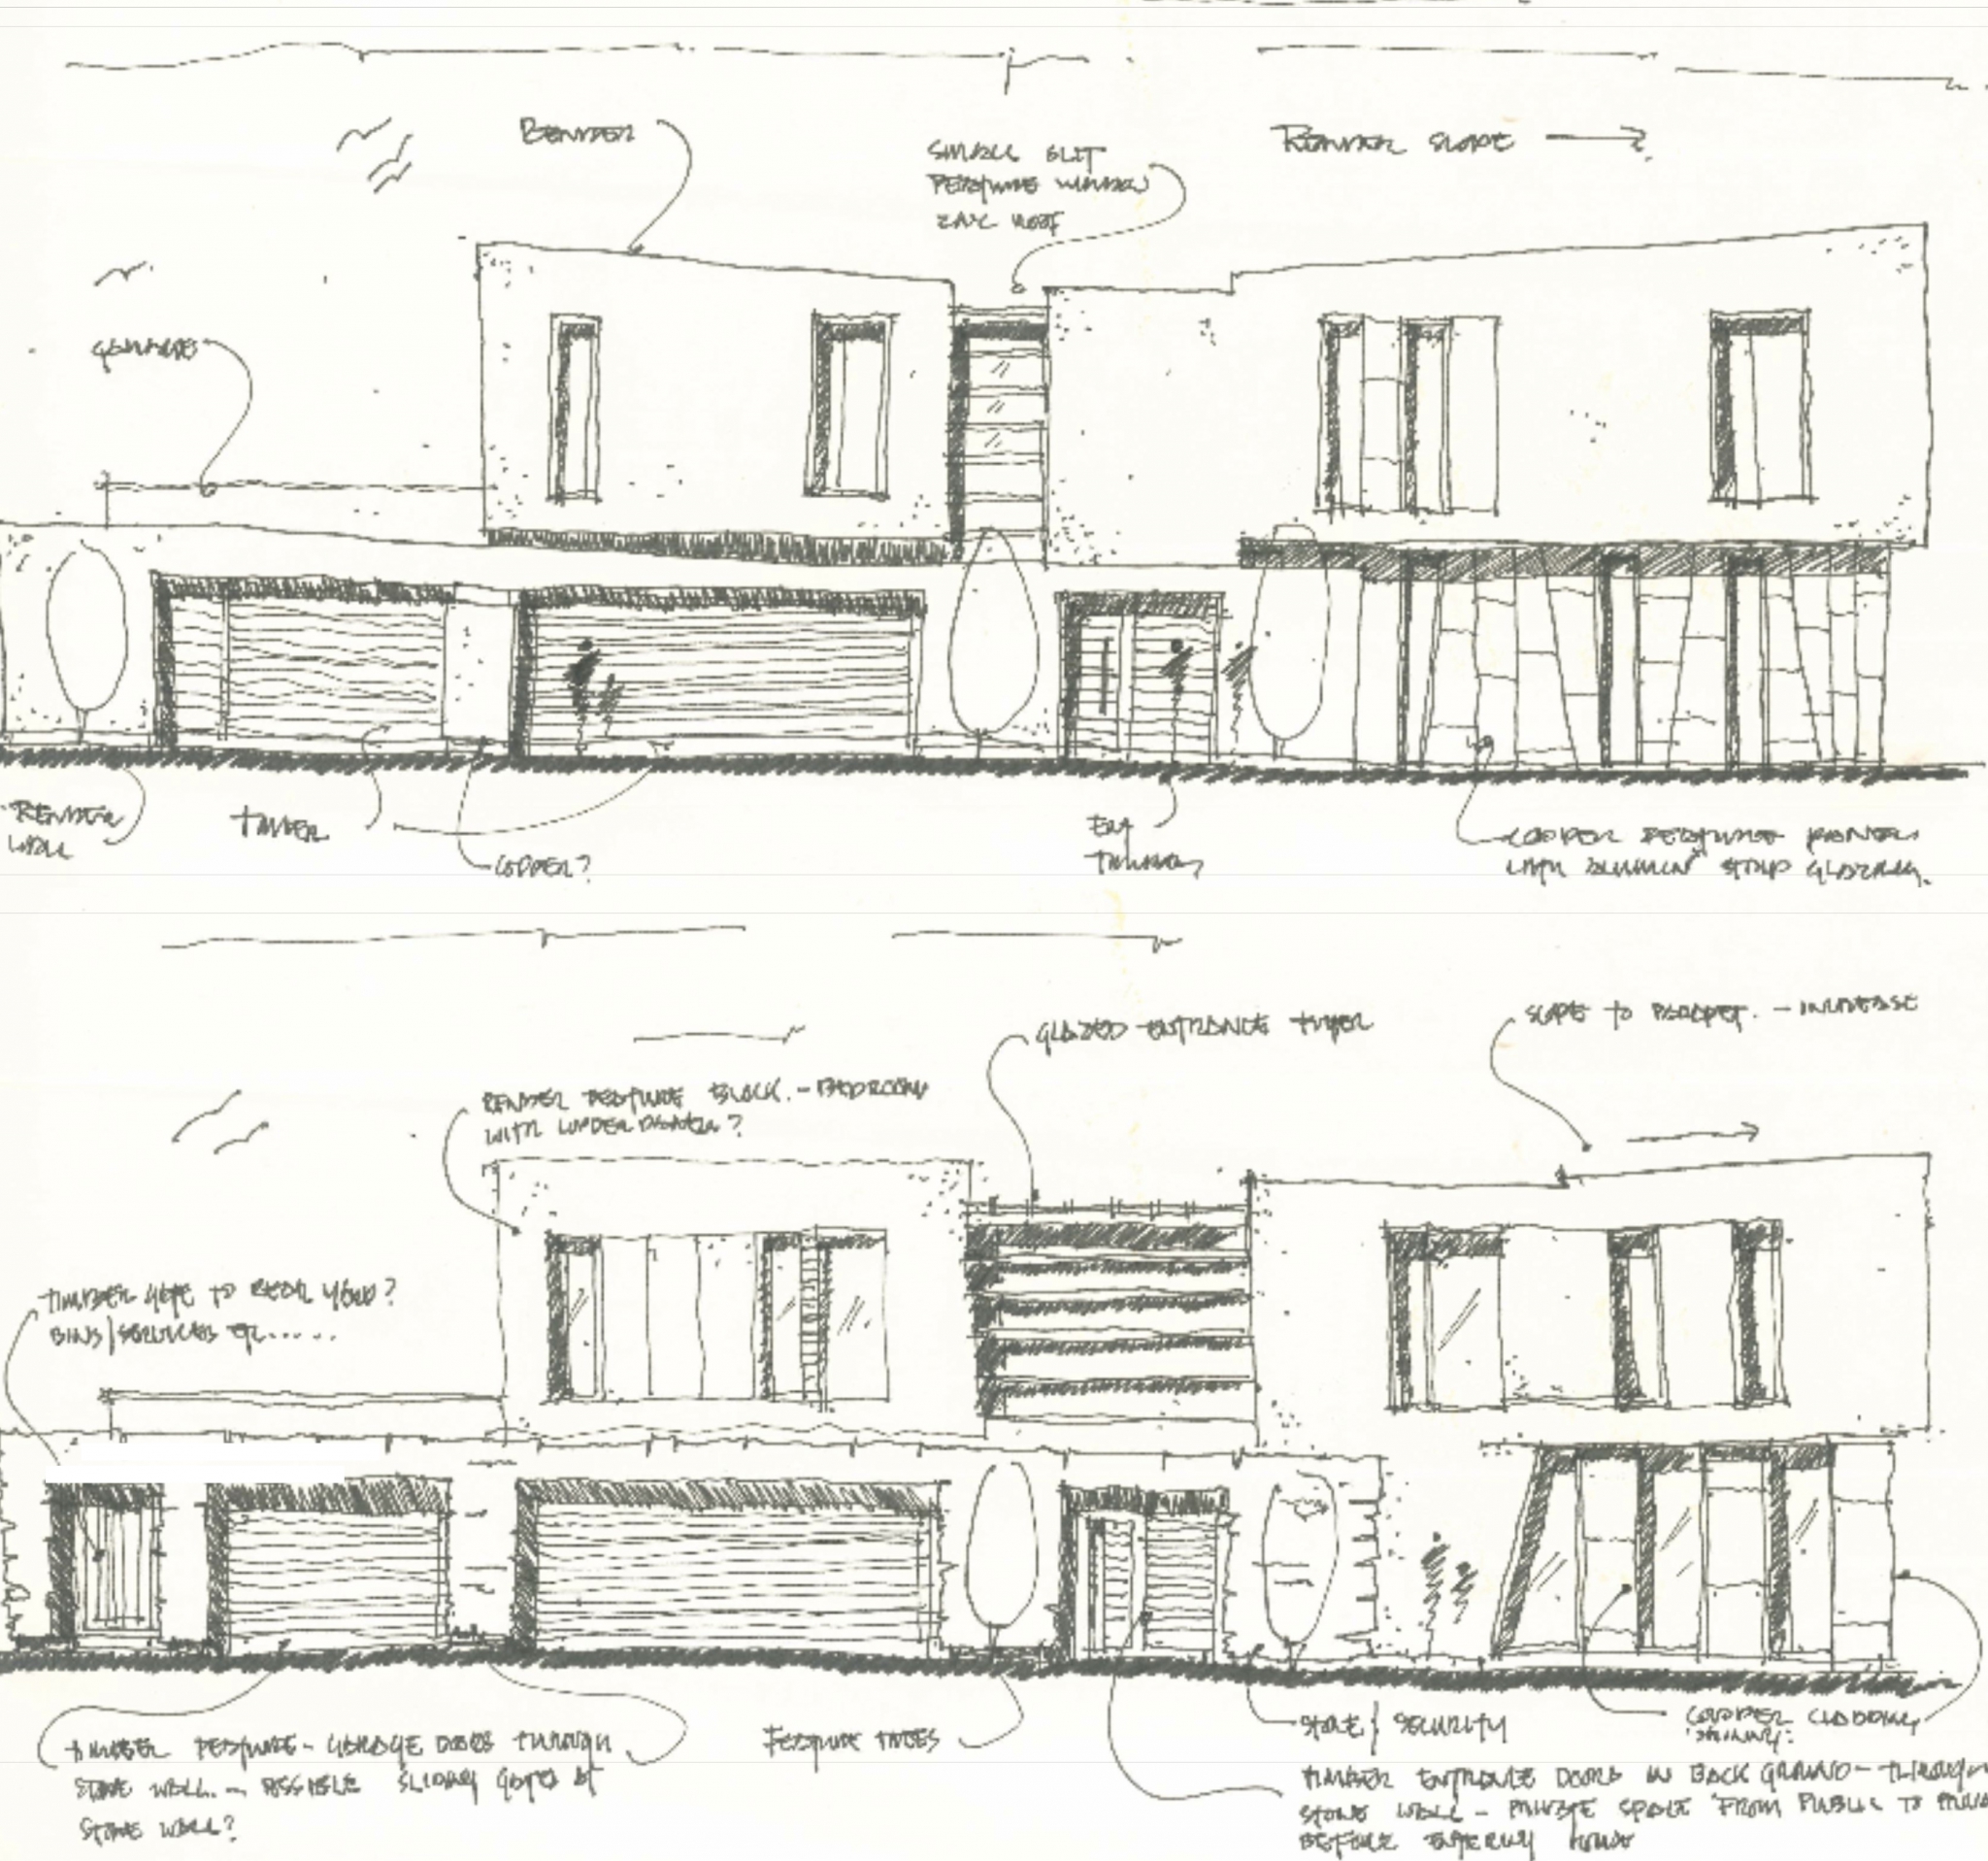 RENDER
SMALL SLIT
FEATURE WINDOW
ZINC ROOF
RENDER SLOPE
GARAGE
RENDER
WALL
TIMBER
COPPER?
COPPER FEATURE PANELS
WITH STRIP GLAZING.
GLAZED ENTRANCE FOYER
SLOPE TO PARAPET. - INCREASE
RENDER FEATURE BLOCK. - BEDROOM
WITH ?
TIMBER GATE TO REAR YARD?
BINS/SERVICES ETC.....
TIMBER FEATURE - GARAGE DOORS THROUGH
STONE WALL - POSSIBLE SLIDING GATES AT
STONE WALL?
FEATURE TREES
STONE / SECURITY
COPPER CLADDING
TIMBER ENTRANCE DOORS IN BACK GROUND - THROUGH
STONE WALL - PRIVATE SPACE FROM PUBLIC TO
BEFORE ENTERING HOUSE